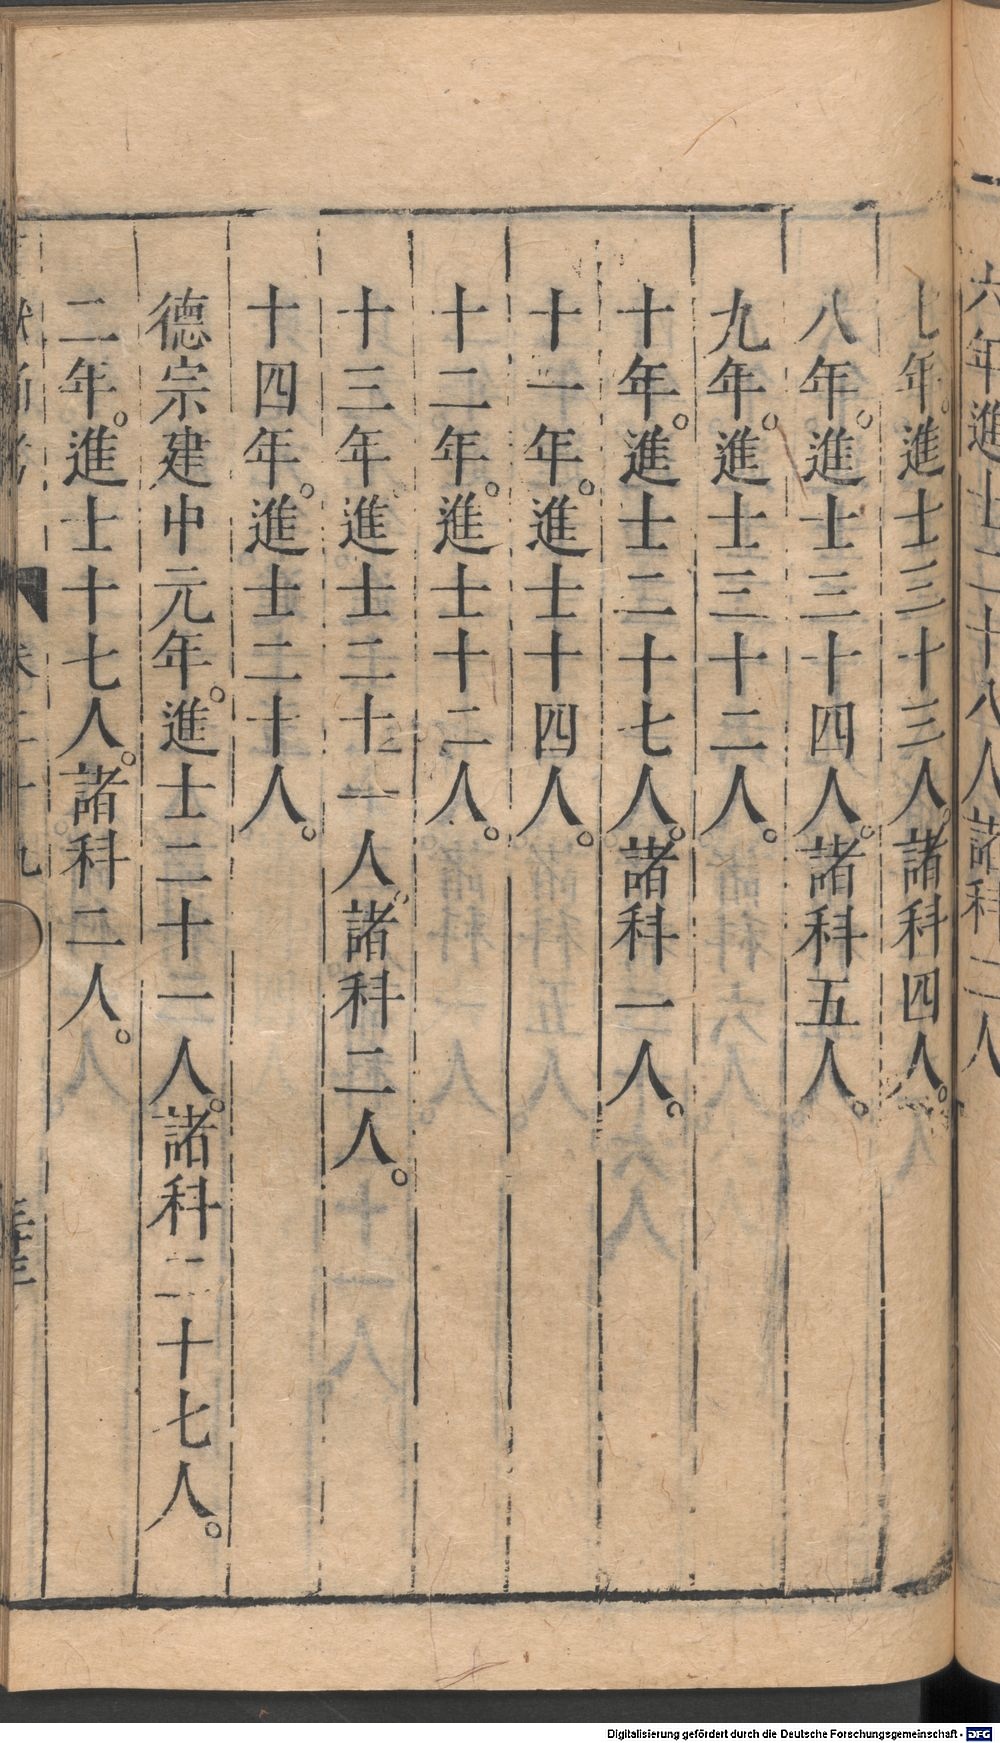 六年進士二十八人諸科二人
七年。進士三十三人。諸科四人。
八年。進士三十四人。諸科五人。
九年。進士三十二人。
十年。進士二十七人。諸科一人。
十一年。進士十四人。
十二年。進士十二人。
十三年進士二十一人。諸科二人。
十四年。進士二十人。
德宗建中元年。進士二十一人。諸科二十七人。
二年。進士十七人。諸科二人。
卷二十九
Digitalisierung gefördert durch die Deutsche Forschungsgemeinschaft - DFG